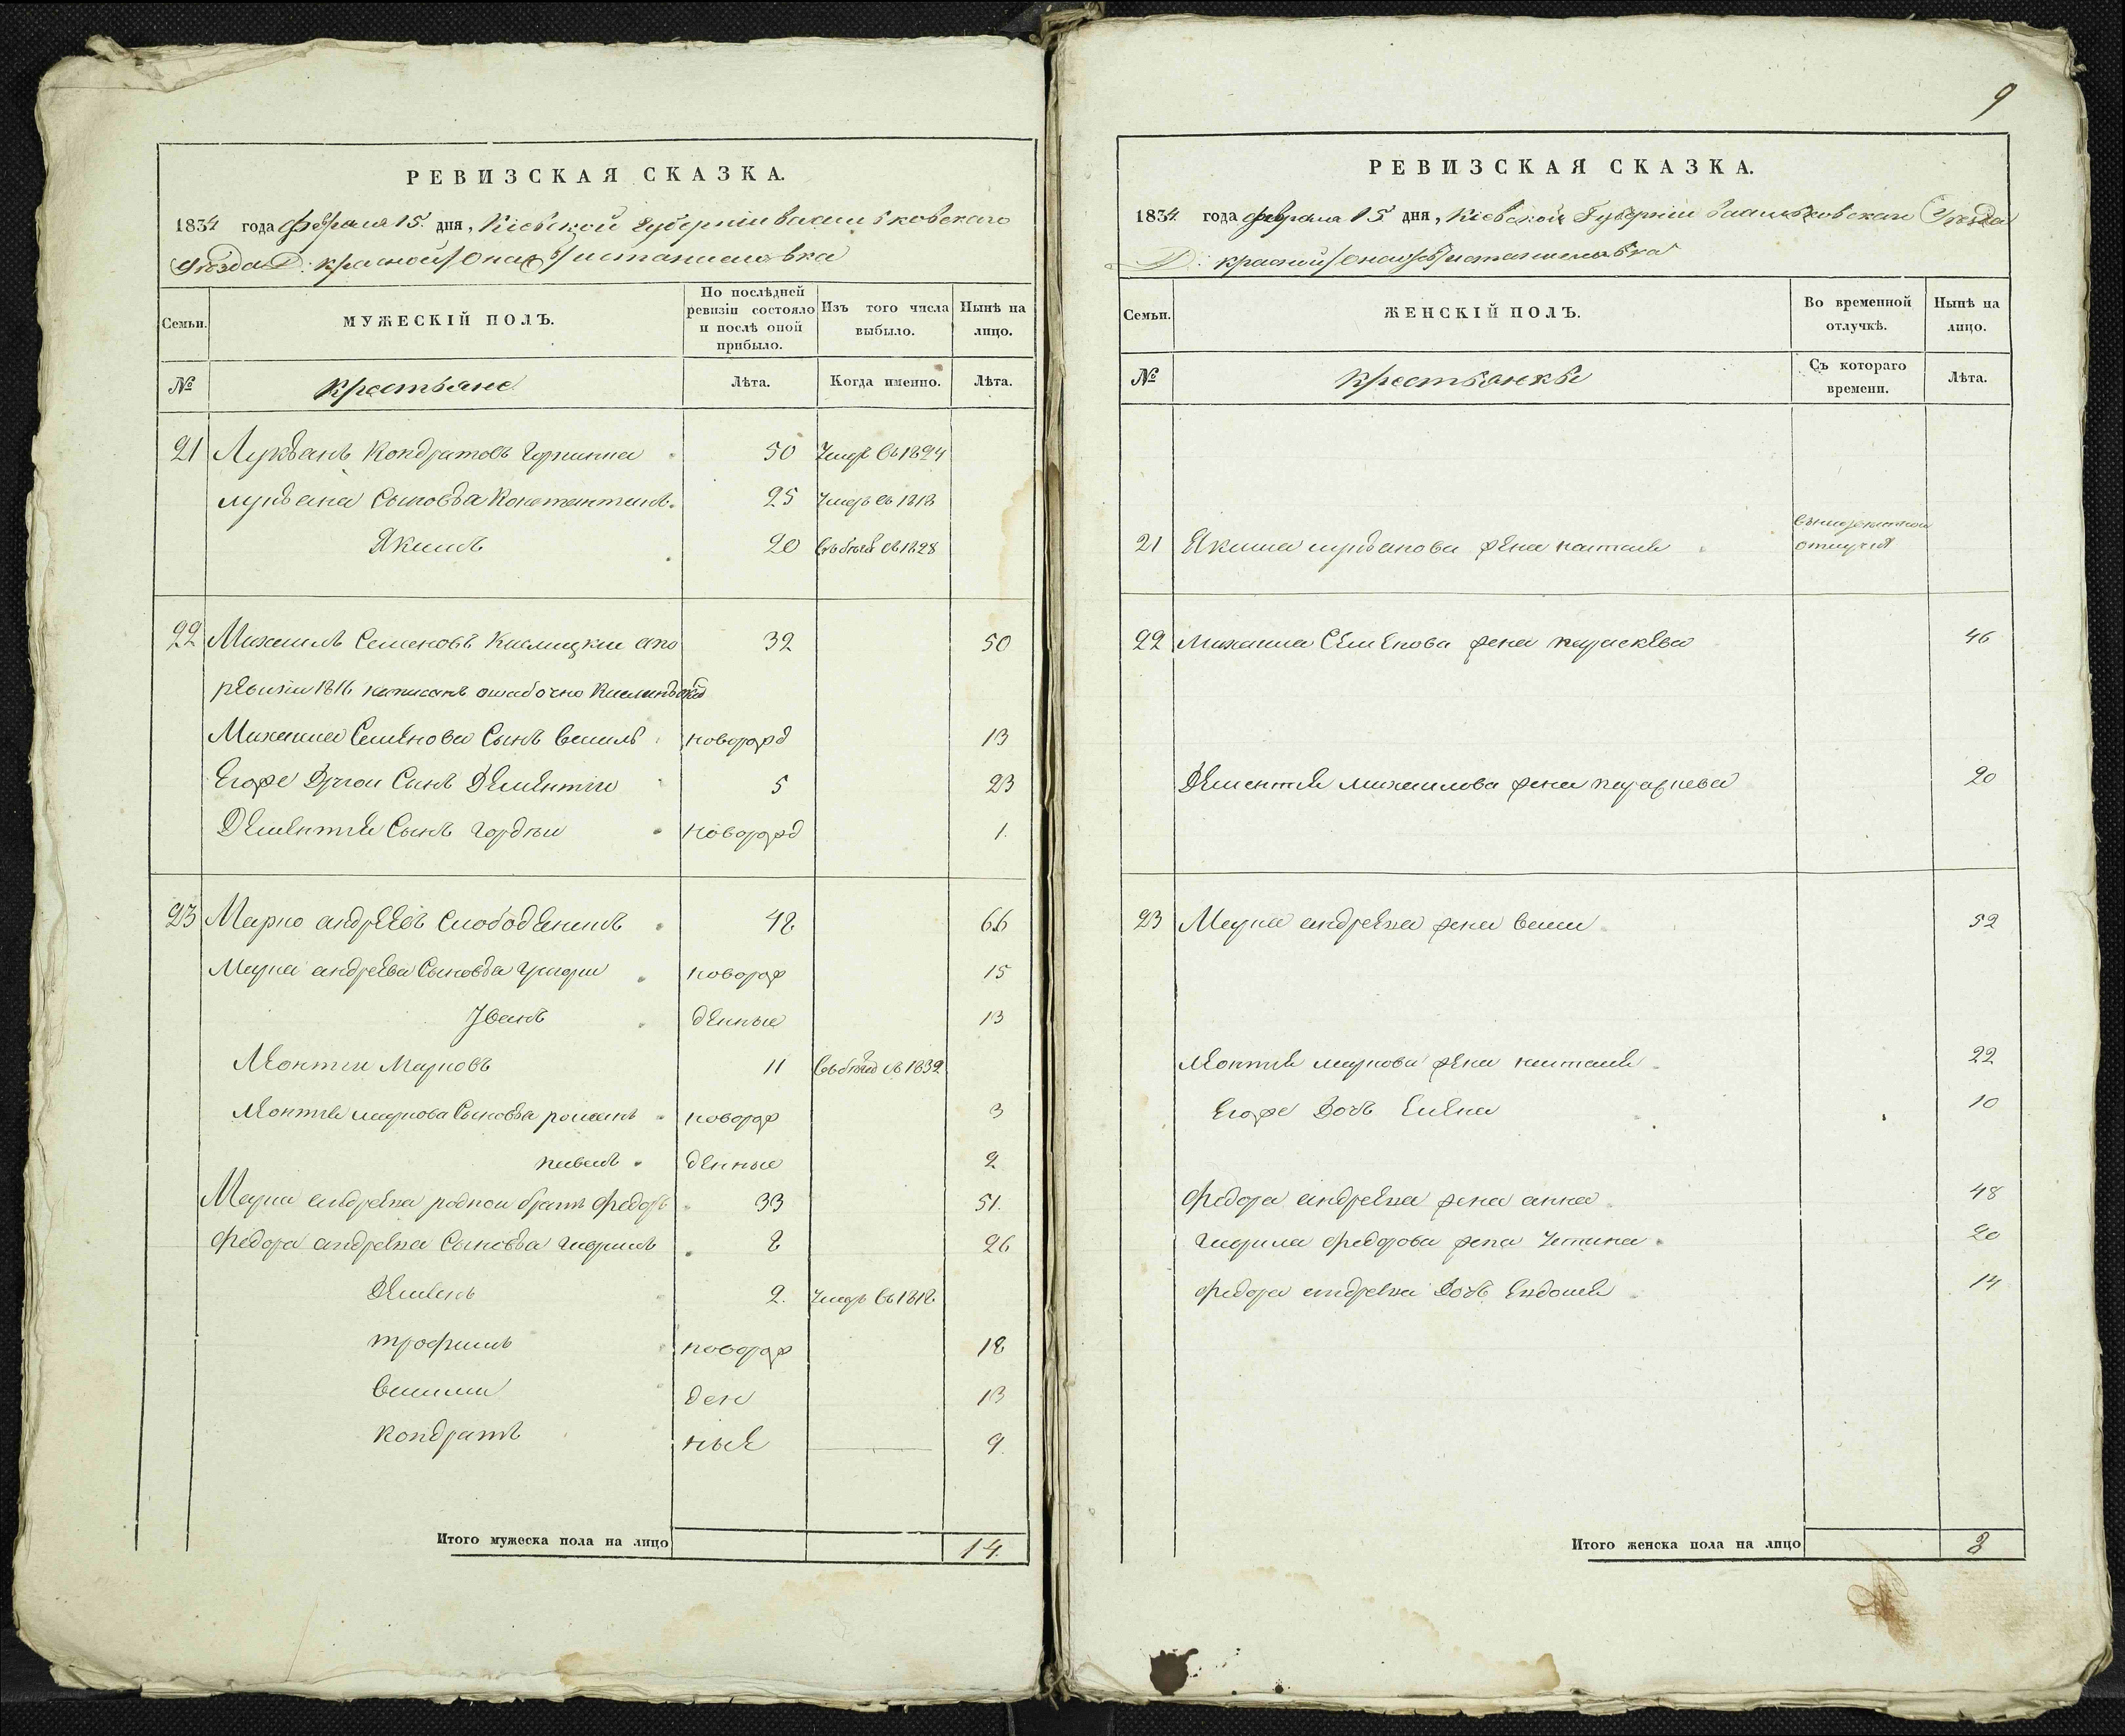 РЕВИЗСКАЯ СКАЗКА.
1834 года февраля 15. дня, Кіевской губерніи васильковскаго
Уѣзда Д: красной
Семьи.
МУЖЕСКІЙ ПОЛЪ.
По послѣдней ревизіи состояло и послѣ оной прибыло.
Изъ того числа выбыло.
Нынѣ на лицо.
№
крестьяне
Лѣта.
Когда именно.
Лѣта.
21 Лукьянъ Кондратовъ 50 Умеръ въ 1824
лукьяна Сыновья Константинъ. 25 Умеръ въ 1818
Якимъ 20 въ 1828
22 Михаилъ Семеновъ 32 50
ревизіи 1816 написанъ ошибочно
Михаила Семенова Сынъ василь новорожд 13
Егоже Другои Сынъ Дементіи 5 23
Дементія Сынъ гордѣи новорожд 1.
23 Марко андреевъ 48 66
Марка андреева Сыновья григори новорож 15
Іванъ денные 13
Леонтіи Марковъ 11 въ 1832
Леонтія маркова Сыновья романъ новорож 3
павелъ денные 2
Марка андреева роднои братъ Федоръ 33 51.
Федора андреева Сыновья гаврилъ 8 26
Демьенъ 2. Умеръ въ 1818
трофимъ новорож 18
василіи ден 13
кондратъ ные 9
Итого мужеска пола на лицо 14.
9
РЕВИЗСКАЯ СКАЗКА.
1834 года февраля 15 дня, Кіевской Губерніи васильковскаго Уѣзда
Д: красной
Семьи.
ЖЕНСКІЙ ПОЛЪ.
Во временной отлучкѣ.
Нынѣ на лицо.
№
Крестьянки
Съ котораго времени.
Лѣта.
21 Якима лукьянова жена наталя
отлучкѣ
22 Михаила Семенова жена параскева 46
Дементія михаилова жена 20
23 Марка андреева жена 52
Леонтія маркова жена наталія 22
Егоже Дочь Елена 10
Федора андреева жена анна 48
гаврила федорова жена 20
Федора андреева Дочь 14
Итого женска пола на лицо 8